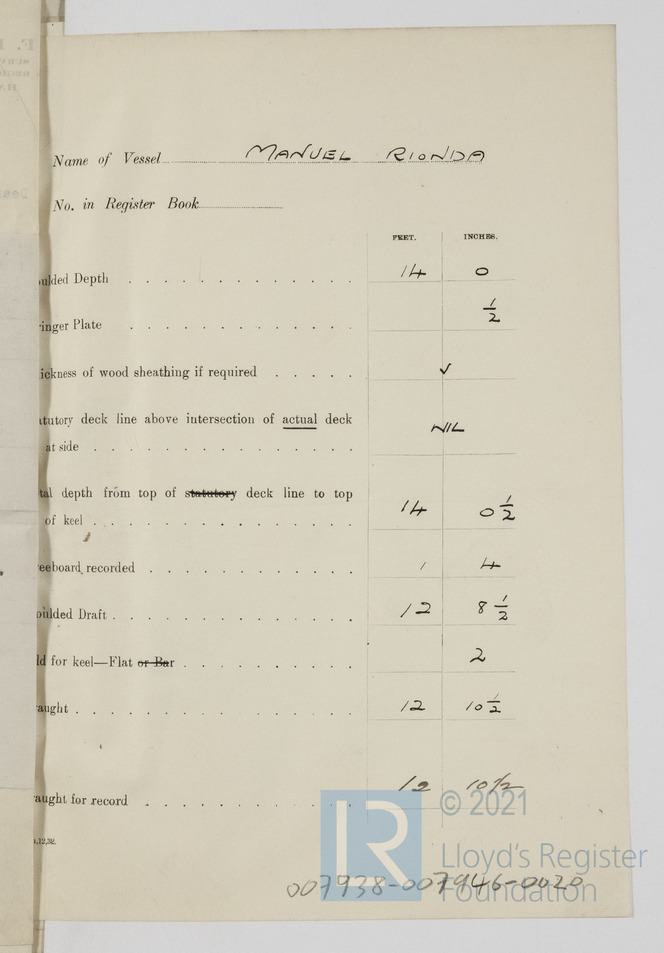 Name of Vessel MANUEL RIONDA
No. in Register Book
FEET. INCHES.
ulded Depth 14 0
inger Plate 1/2
ickness of wood sheathing if required ✓
atutory deck line above intersection of actual deck
at side NIL
tal depth from top of statutory deck line to top
of keel 14 0 1/2
eeboard recorded 1 4
oulded Draft 12 8 1/2
ld for keel—Flat or Bar 2
aught 12 10 1/2
aught for record 12 10 1/2
,12,32.
© 2021
LR
Lloyd's Register
Foundation
007938-007946-0020